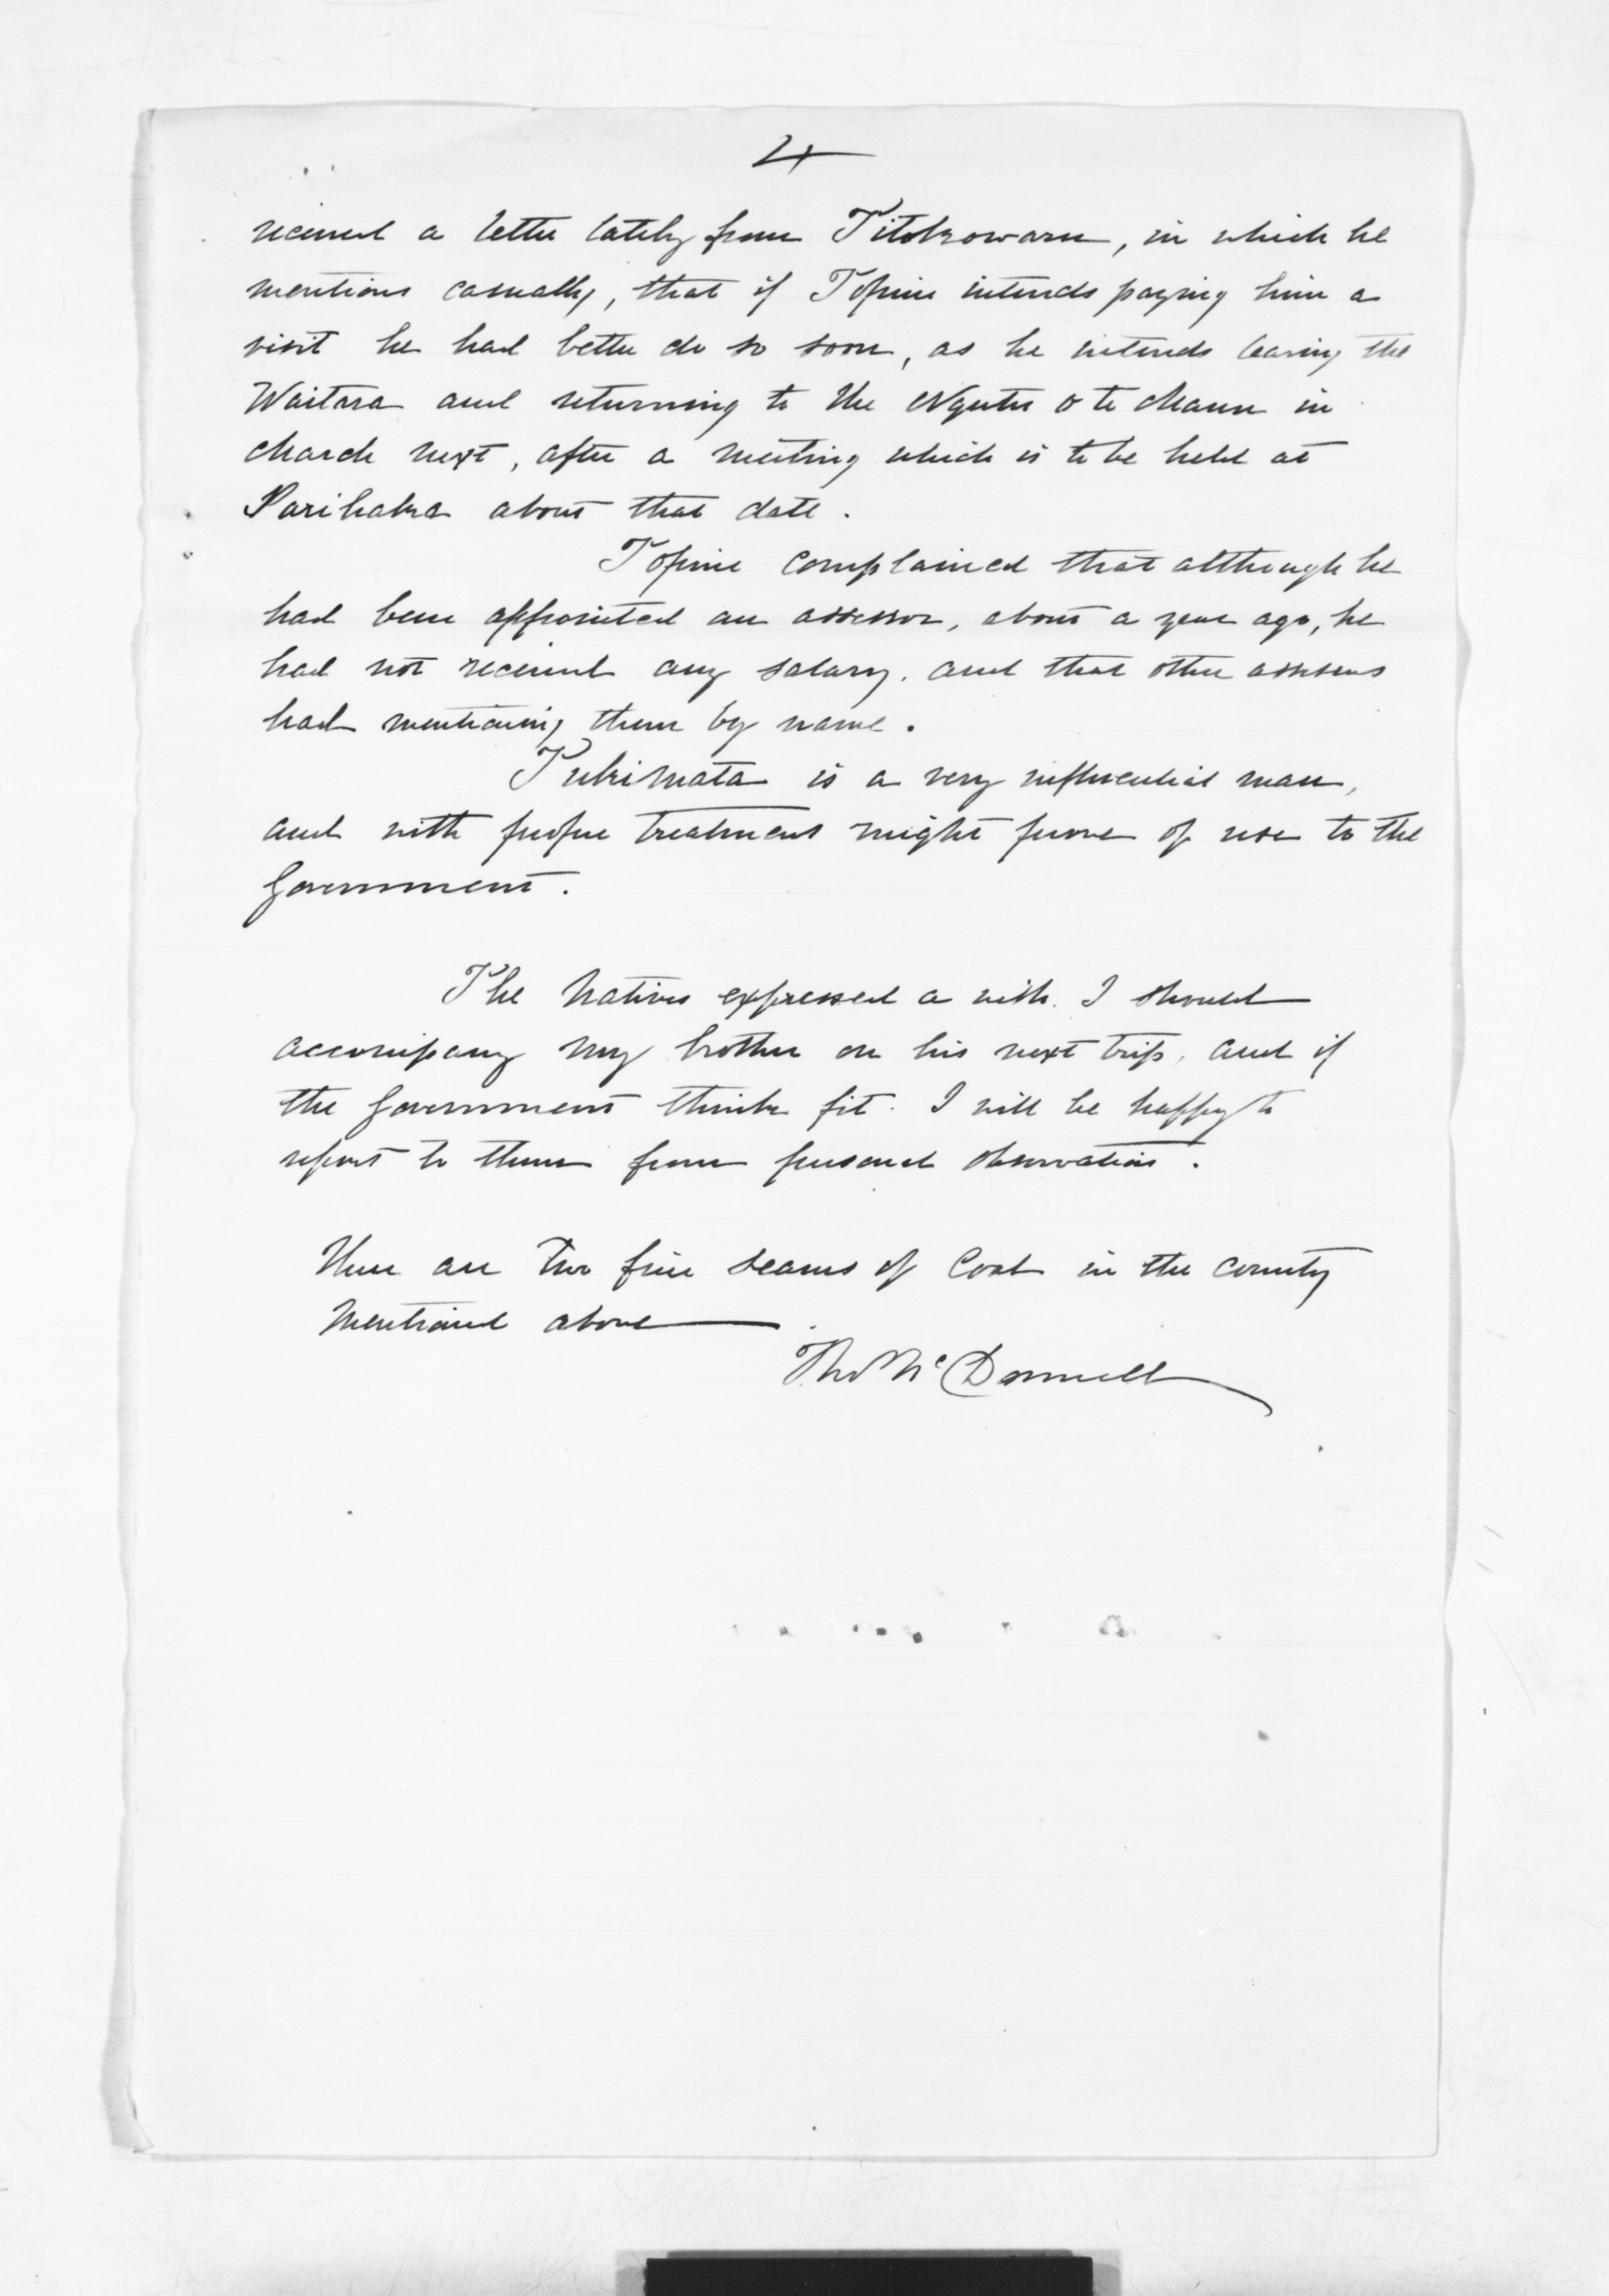 4
received a letter lately from Titokowaru, in which he
mentions casually, that if Topine intends paying him a
visit he had better do so soon, as he intends leaving the
Waitara and returning to the Ngutu o te Manu in
March next, after a meeting which is to be held at
Parihaka about that date.
Topine complained that although he
had been appointed an assessor, about a year ago, he
had not received any salary. and that other assessors
had mentioning them by name.
Tukimata is a very influential man,
and with proper treatment might prove of use to the
Government.
The Natives expressed a wish. I should
accompany my brother on his next trip, and if
the Government think fit. I will be happy to
report to them from personal observation.
There are two fine seams of Coal in the county
mentioned above
Tho McDonnell